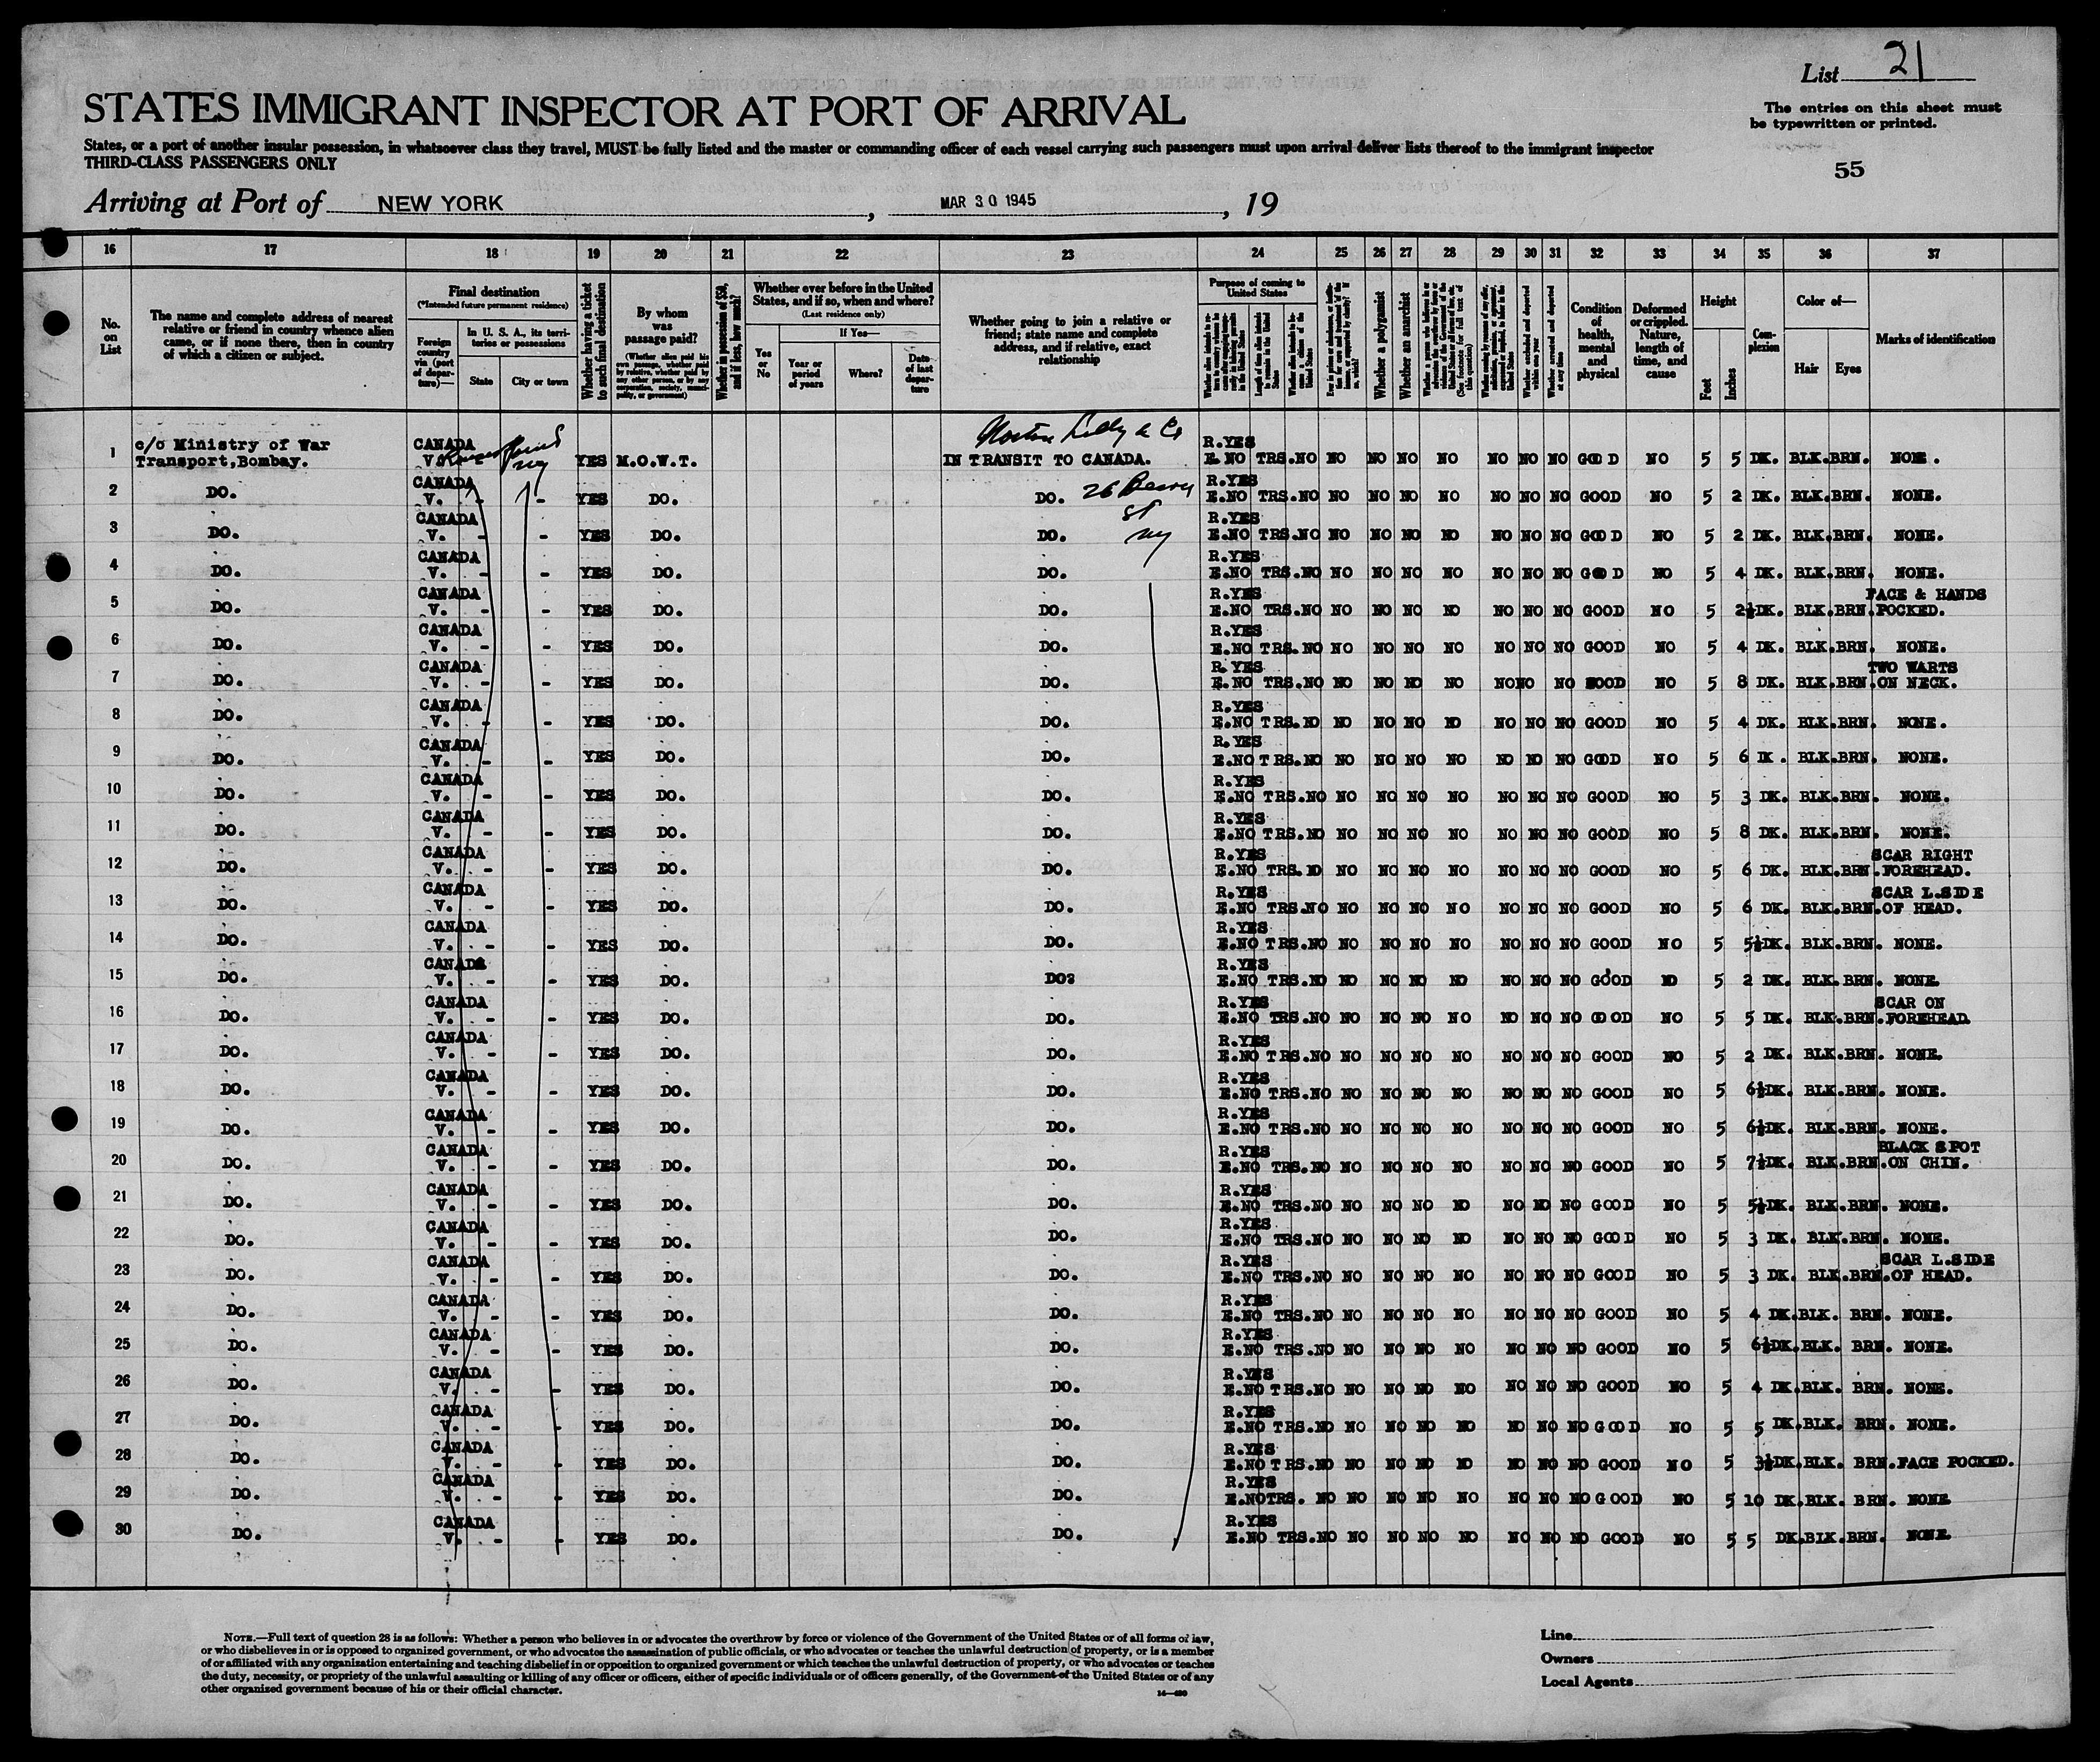 List 21
STATES IMMIGRANT INSPECTOR AT PORT OF ARRIVAL
The entries on this sheet must
be typewritten or printed.
States, or a port of another insular possession, in whatsoever class they travel, MUST be fully listed and the master or commanding officer of each vessel carrying such passengers must upon arrival deliver lists thereof to the immigrant inspector
THIRD-CLASS PASSENGERS ONLY
55
Arriving at Port of NEW YORK , MAR 30 1945 , 19
16 17 18 19 20 21 22 23 24 25 26 27 28 29 30 31 32 33 34 35 36 37
No. on List
The name and complete address of nearest relative or friend in country whence alien came, or if none there, then in country of which a citizen or subject.
Final destination
(*Intended future permanent residence)
Foreign country via (port of departure)—
In U. S. A., its territories or possessions
State
City or town
Whether having a ticket to such final destination
By whom was passage paid?
(Whether alien paid his own passage, whether paid by relative, whether paid by any other person, or by any corporation, society, municipality, or government)
Whether in possession of $50, and if less, how much?
Whether ever before in the United States, and if so, when and where?
(Last residence only)
If Yes—
Yes or No
Year or period of years
Where?
Date of last departure
Whether going to join a relative or friend; state name and complete address, and if relative, exact relationship
Purpose of coming to United States
Whether a polygamist
Whether an anarchist
Whether excluded and deported within one year
Whether arrested and deported at any time
Condition of health, mental and physical
Deformed or crippled. Nature, length of time, and cause
Height
Feet
Inches
Complexion
Color of—
Hair
Eyes
Marks of identification
1 c/o Ministry of War Transport, Bombay. CANADA V. - YES M.O.W.T. IN TRANSIT TO CANADA. R.YES E.NO TRS.NO NO NO NO NO NO NO NO GOOD NO 5 5 DK. BLK.BRN. NONE.
2 DO. CANADA V. - - YES DO. DO. 26 R.YES E.NO TRS.NO NO NO NO NO NO NO NO GOOD NO 5 2 DK. BLK.BRN. NONE.
St
3 DO. CANADA V. - - YES DO. DO. NY R.YES E.NO TRS.NO NO NO NO NO NO NO NO GOOD NO 5 2 DK. BLK.BRN. NONE.
4 DO. CANADA V. - - YES DO. DO. R.YES E.NO TRS.NO NO NO NO NO NO NO NO GOOD NO 5 4 DK. BLK.BRN. NONE.
5 DO. CANADA V. - - YES DO. DO. R.YES E.NO TRS.NO NO NO NO NO NO NO NO GOOD NO 5 2½ DK. BLK.BRN. FACE & HANDS POCKED.
6 DO. CANADA V. - - YES DO. DO. R.YES E.NO TRS.NO NO NO NO NO NO NO NO GOOD NO 5 4 DK. BLK.BRN. NONE.
7 DO. CANADA V. - - YES DO. DO. R.YES E.NO TRS.NO NO NO NO NO NO NO NO GOOD NO 5 8 DK. BLK.BRN. TWO WARTS ON NECK.
8 DO. CANADA V. - - YES DO. DO. R.YES E.NO TRS.NO NO NO NO NO NO NO NO GOOD NO 5 4 DK. BLK.BRN. NONE.
9 DO. CANADA V. - - YES DO. DO. R.YES E.NO TRS.NO NO NO NO NO NO NO NO GOOD NO 5 6 DK. BLK.BRN. NONE.
10 DO. CANADA V. - - YES DO. DO. R.YES E.NO TRS.NO NO NO NO NO NO NO NO GOOD NO 5 3 DK. BLK.BRN. NONE.
11 DO. CANADA V. - - YES DO. DO. R.YES E.NO TRS.NO NO NO NO NO NO NO NO GOOD NO 5 8 DK. BLK.BRN. NONE.
12 DO. CANADA V. - - YES DO. DO. R.YES E.NO TRS.NO NO NO NO NO NO NO NO GOOD NO 5 6 DK. BLK.BRN. SCAR RIGHT FOREHEAD.
13 DO. CANADA V. - - YES DO. DO. R.YES E.NO TRS.NO NO NO NO NO NO NO NO GOOD NO 5 6 DK. BLK.BRN. SCAR L.SIDE OF HEAD.
14 DO. CANADA V. - - YES DO. DO. R.YES E.NO TRS.NO NO NO NO NO NO NO NO GOOD NO 5 5½ DK. BLK.BRN. NONE.
15 DO. CANADA V. - - YES DO. DO? R.YES E.NO TRS.NO NO NO NO NO NO NO NO GOOD NO 5 2 DK. BLK.BRN. NONE.
16 DO. CANADA V. - - YES DO. DO. R.YES E.NO TRS.NO NO NO NO NO NO NO NO GOOD NO 5 5 DK. BLK.BRN. SCAR ON FOREHEAD.
17 DO. CANADA V. - - YES DO. DO. R.YES E.NO TRS.NO NO NO NO NO NO NO NO GOOD NO 5 2 DK. BLK.BRN. NONE.
18 DO. CANADA V. - - YES DO. DO. R.YES E.NO TRS.NO NO NO NO NO NO NO NO GOOD NO 5 6½ DK. BLK.BRN. NONE.
19 DO. CANADA V. - - YES DO. DO. R.YES E.NO TRS.NO NO NO NO NO NO NO NO GOOD NO 5 6½ DK. BLK.BRN. NONE.
20 DO. CANADA V. - - YES DO. DO. R.YES E.NO TRS.NO NO NO NO NO NO NO NO GOOD NO 5 7½ DK. BLK.BRN. BLACK SPOT ON CHIN.
21 DO. CANADA V. - - YES DO. DO. R.YES E.NO TRS.NO NO NO NO NO NO NO NO GOOD NO 5 5½ DK. BLK.BRN. NONE.
22 DO. CANADA V. - - YES DO. DO. R.YES E.NO TRS.NO NO NO NO NO NO NO NO GOOD NO 5 3 DK. BLK.BRN. NONE.
23 DO. CANADA V. - - YES DO. DO. R.YES E.NO TRS.NO NO NO NO NO NO NO NO GOOD NO 5 3 DK. BLK.BRN. SCAR L.SIDE OF HEAD.
24 DO. CANADA V. - - YES DO. DO. R.YES E.NO TRS.NO NO NO NO NO NO NO NO GOOD NO 5 4 DK.BLK. BRN. NONE.
25 DO. CANADA V. - - YES DO. DO. R.YES E.NO TRS.NO NO NO NO NO NO NO NO GOOD NO 5 6½ DK.BLK. BRN. NONE.
26 DO. CANADA V. - - YES DO. DO. R.YES E.NO TRS.NO NO NO NO NO NO NO NO GOOD NO 5 4 DK.BLK. BRN. NONE.
27 DO. CANADA V. - - YES DO. DO. R.YES E.NO TRS.NO NO NO NO NO NO NO NO GOOD NO 5 5 DK.BLK. BRN. NONE.
28 DO. CANADA V. - - YES DO. DO. R.YES E.NO TRS.NO NO NO NO NO NO NO NO GOOD NO 5 3½ DK.BLK. BRN. FACE POCKED.
29 DO. CANADA V. - - YES DO. DO. R.YES E.NO TRS. NO NO NO NO NO NO NO NO GOOD NO 5 10 DK.BLK. BRN. NONE
30 DO. CANADA V. - - YES DO. DO. R.YES E.NO TRS.NO NO NO NO NO NO NO NO GOOD NO 5 5 DK.BLK.BRN. NONE.
NOTE.—Full text of question 28 is as follows: Whether a person who believes in or advocates the overthrow by force or violence of the Government of the United States or of all forms of law,
or who disbelieves in or is opposed to organized government, or who advocates the assassination of public officials, or who advocates or teaches the unlawful destruction of property, or is a member
of or affiliated with any organization entertaining and teaching disbelief in or opposition to organized government or which teaches the unlawful destruction of property, or who advocates or teaches
the duty, necessity, or propriety of the unlawful assaulting or killing of any officer or officers, either of specific individuals or of officers generally, of the Government of the United States or of any
other organized government because of his or their official character.
Line
Owners
Local Agents